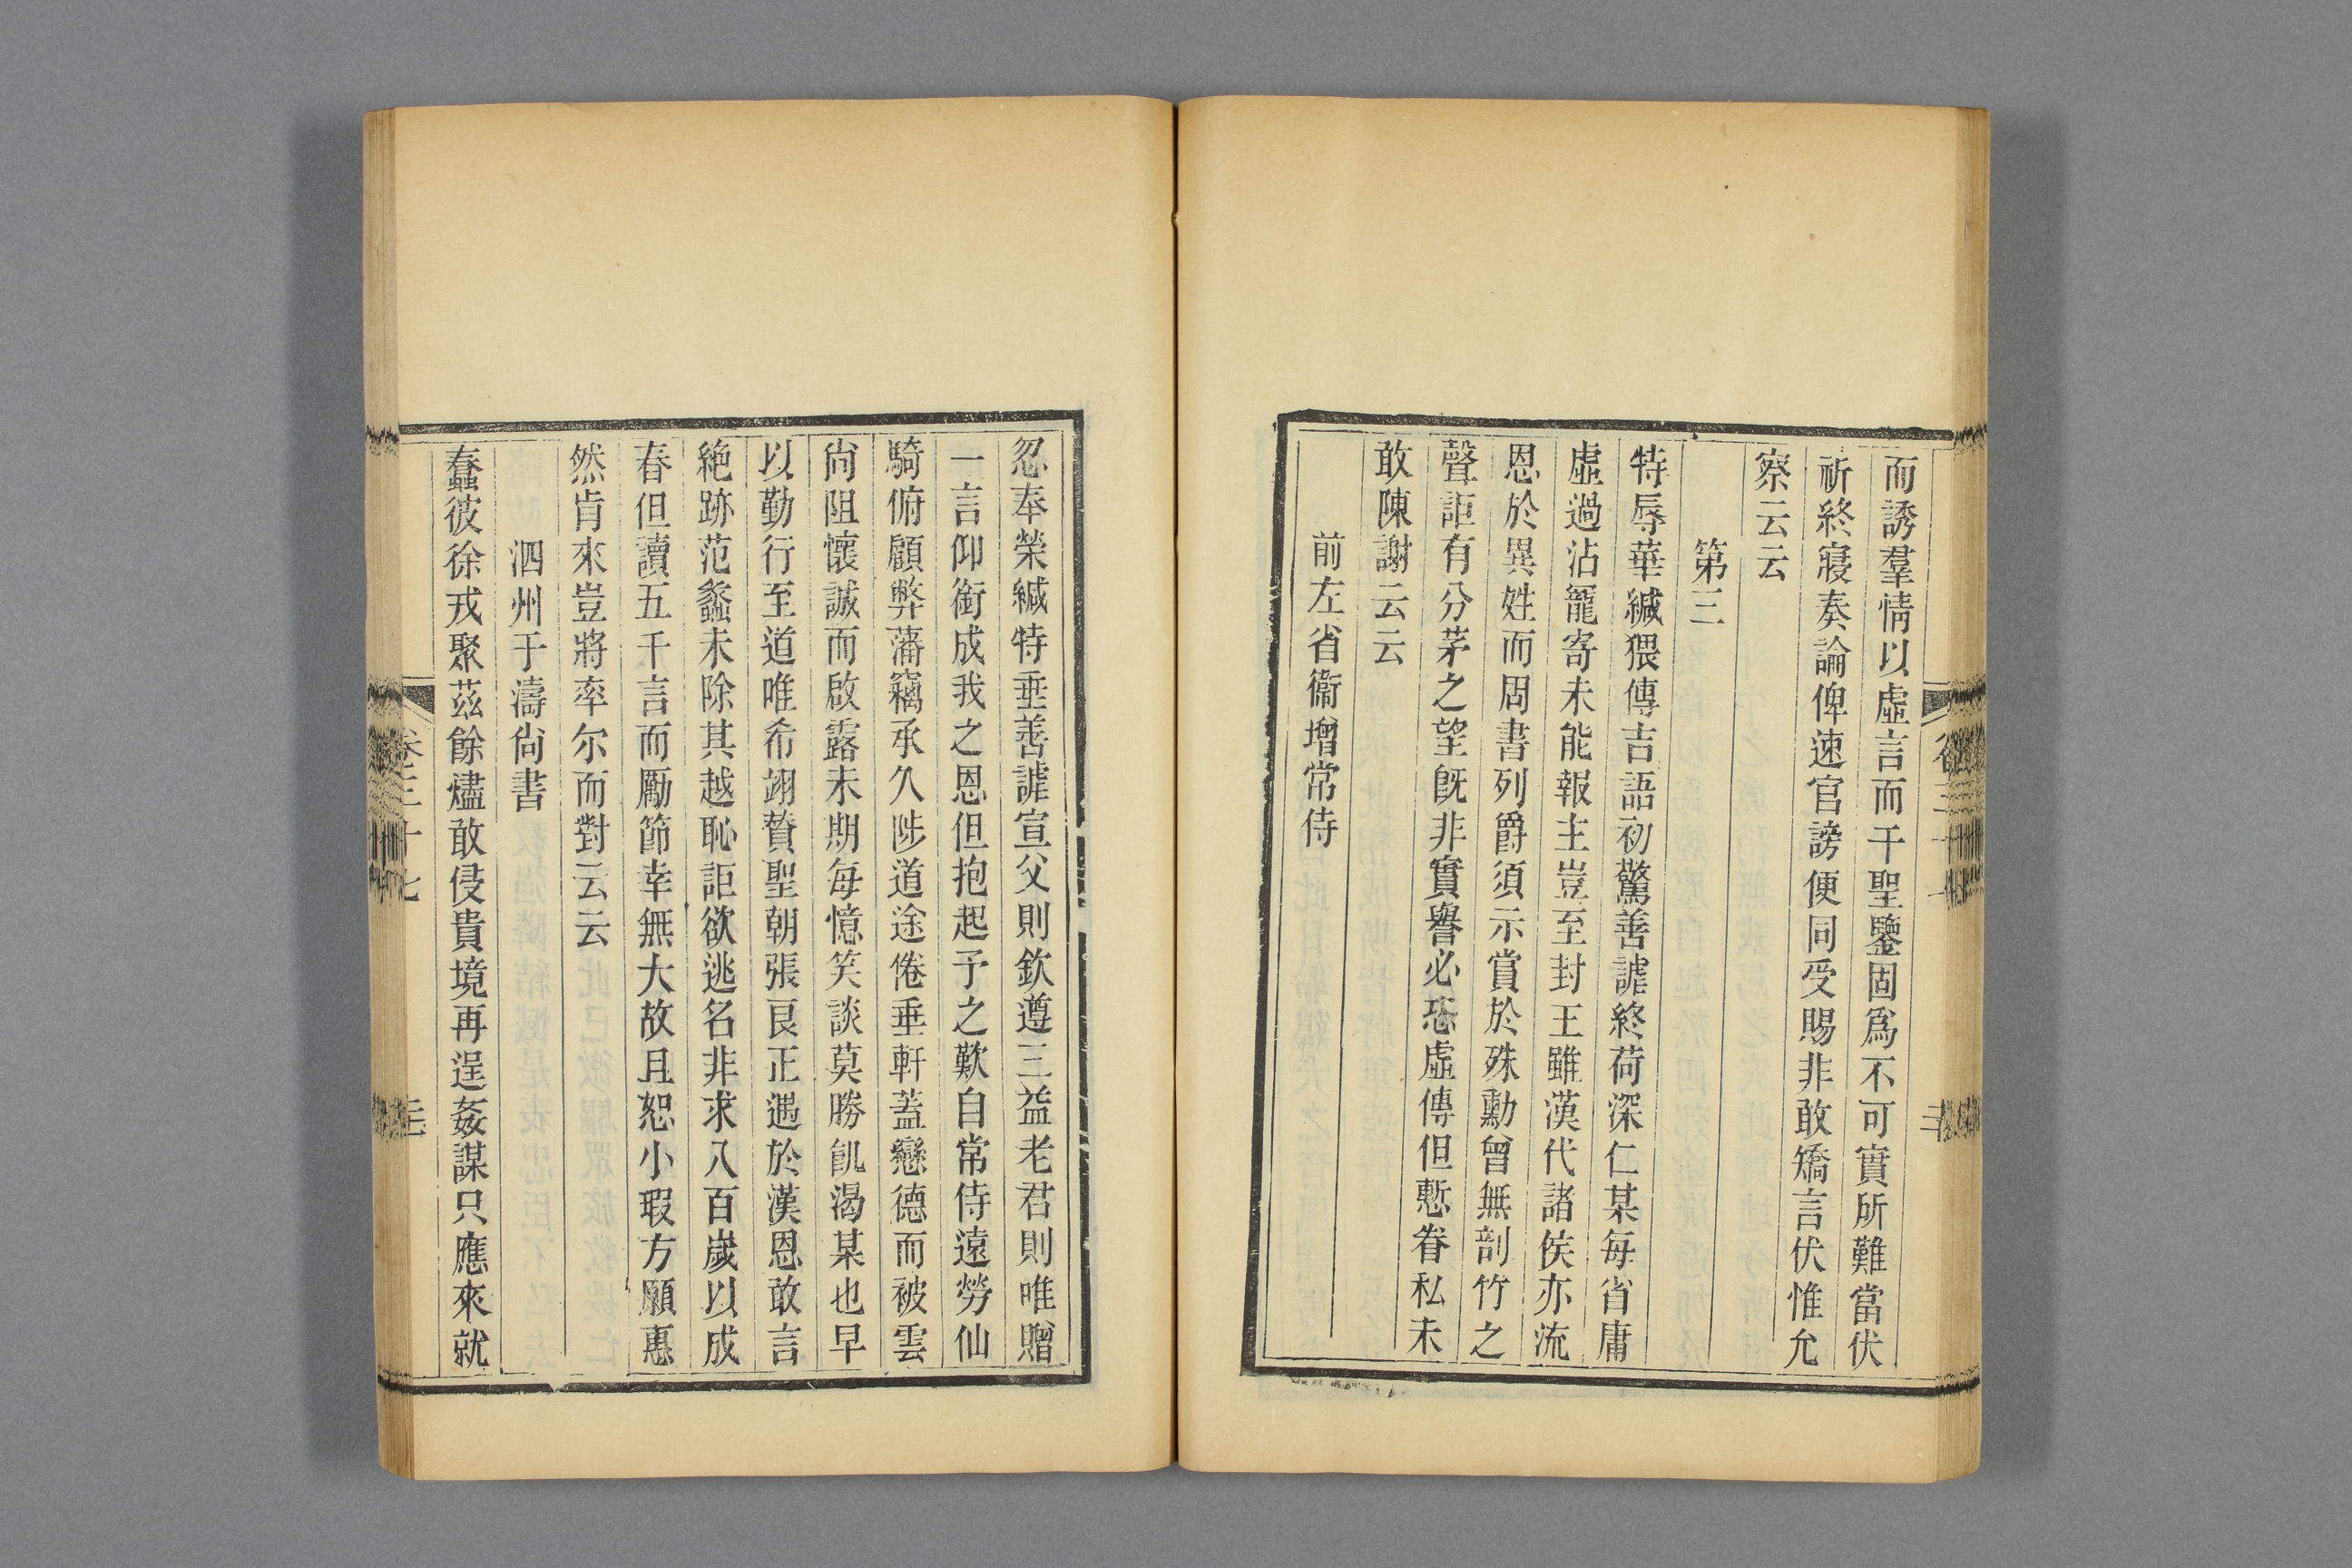 而誘羣情以虛言而干聖鑒固爲不可實所難當伏
祈終寢奏論俾速官謗便同受賜非敢矯言伏惟允
察云云
第三
特辱華緘猥傳吉語初驚善謔終荷深仁某每省庸
虛過沾寵寄未能報主豈至封王雖漢代諸侯亦流
恩於異姓而周書列爵須示賞於殊勳曾無剖竹之
聲詎有分茅之望旣非實譽必恐虛傳但慙眷私未
敢陳謝云云
前左省衞增常侍
忽奉榮緘特垂善謔宣父則欽遵三益老君則唯贈
一言仰銜成我之恩但抱起予之歎自常侍遠勞仙
騎俯顧弊藩竊承久陟道途倦垂軒蓋戀德而被雲
尙阻懷誠而啟露未期每憶笑談莫勝飢渴某也早
以勤行至道唯希翊贊聖朝張良正遇於漢恩敢言
絶跡范蠡未除其越恥詎欲逃名非求入百歲以成
春但讀五千言而勵節幸無大故且恕小瑕方願惠
然肯來豈將率尔而對云云
泗州于濤尙書
蠢彼徐戎聚茲餘燼敢侵貴境再逞姦謀只應來就
卷三十七